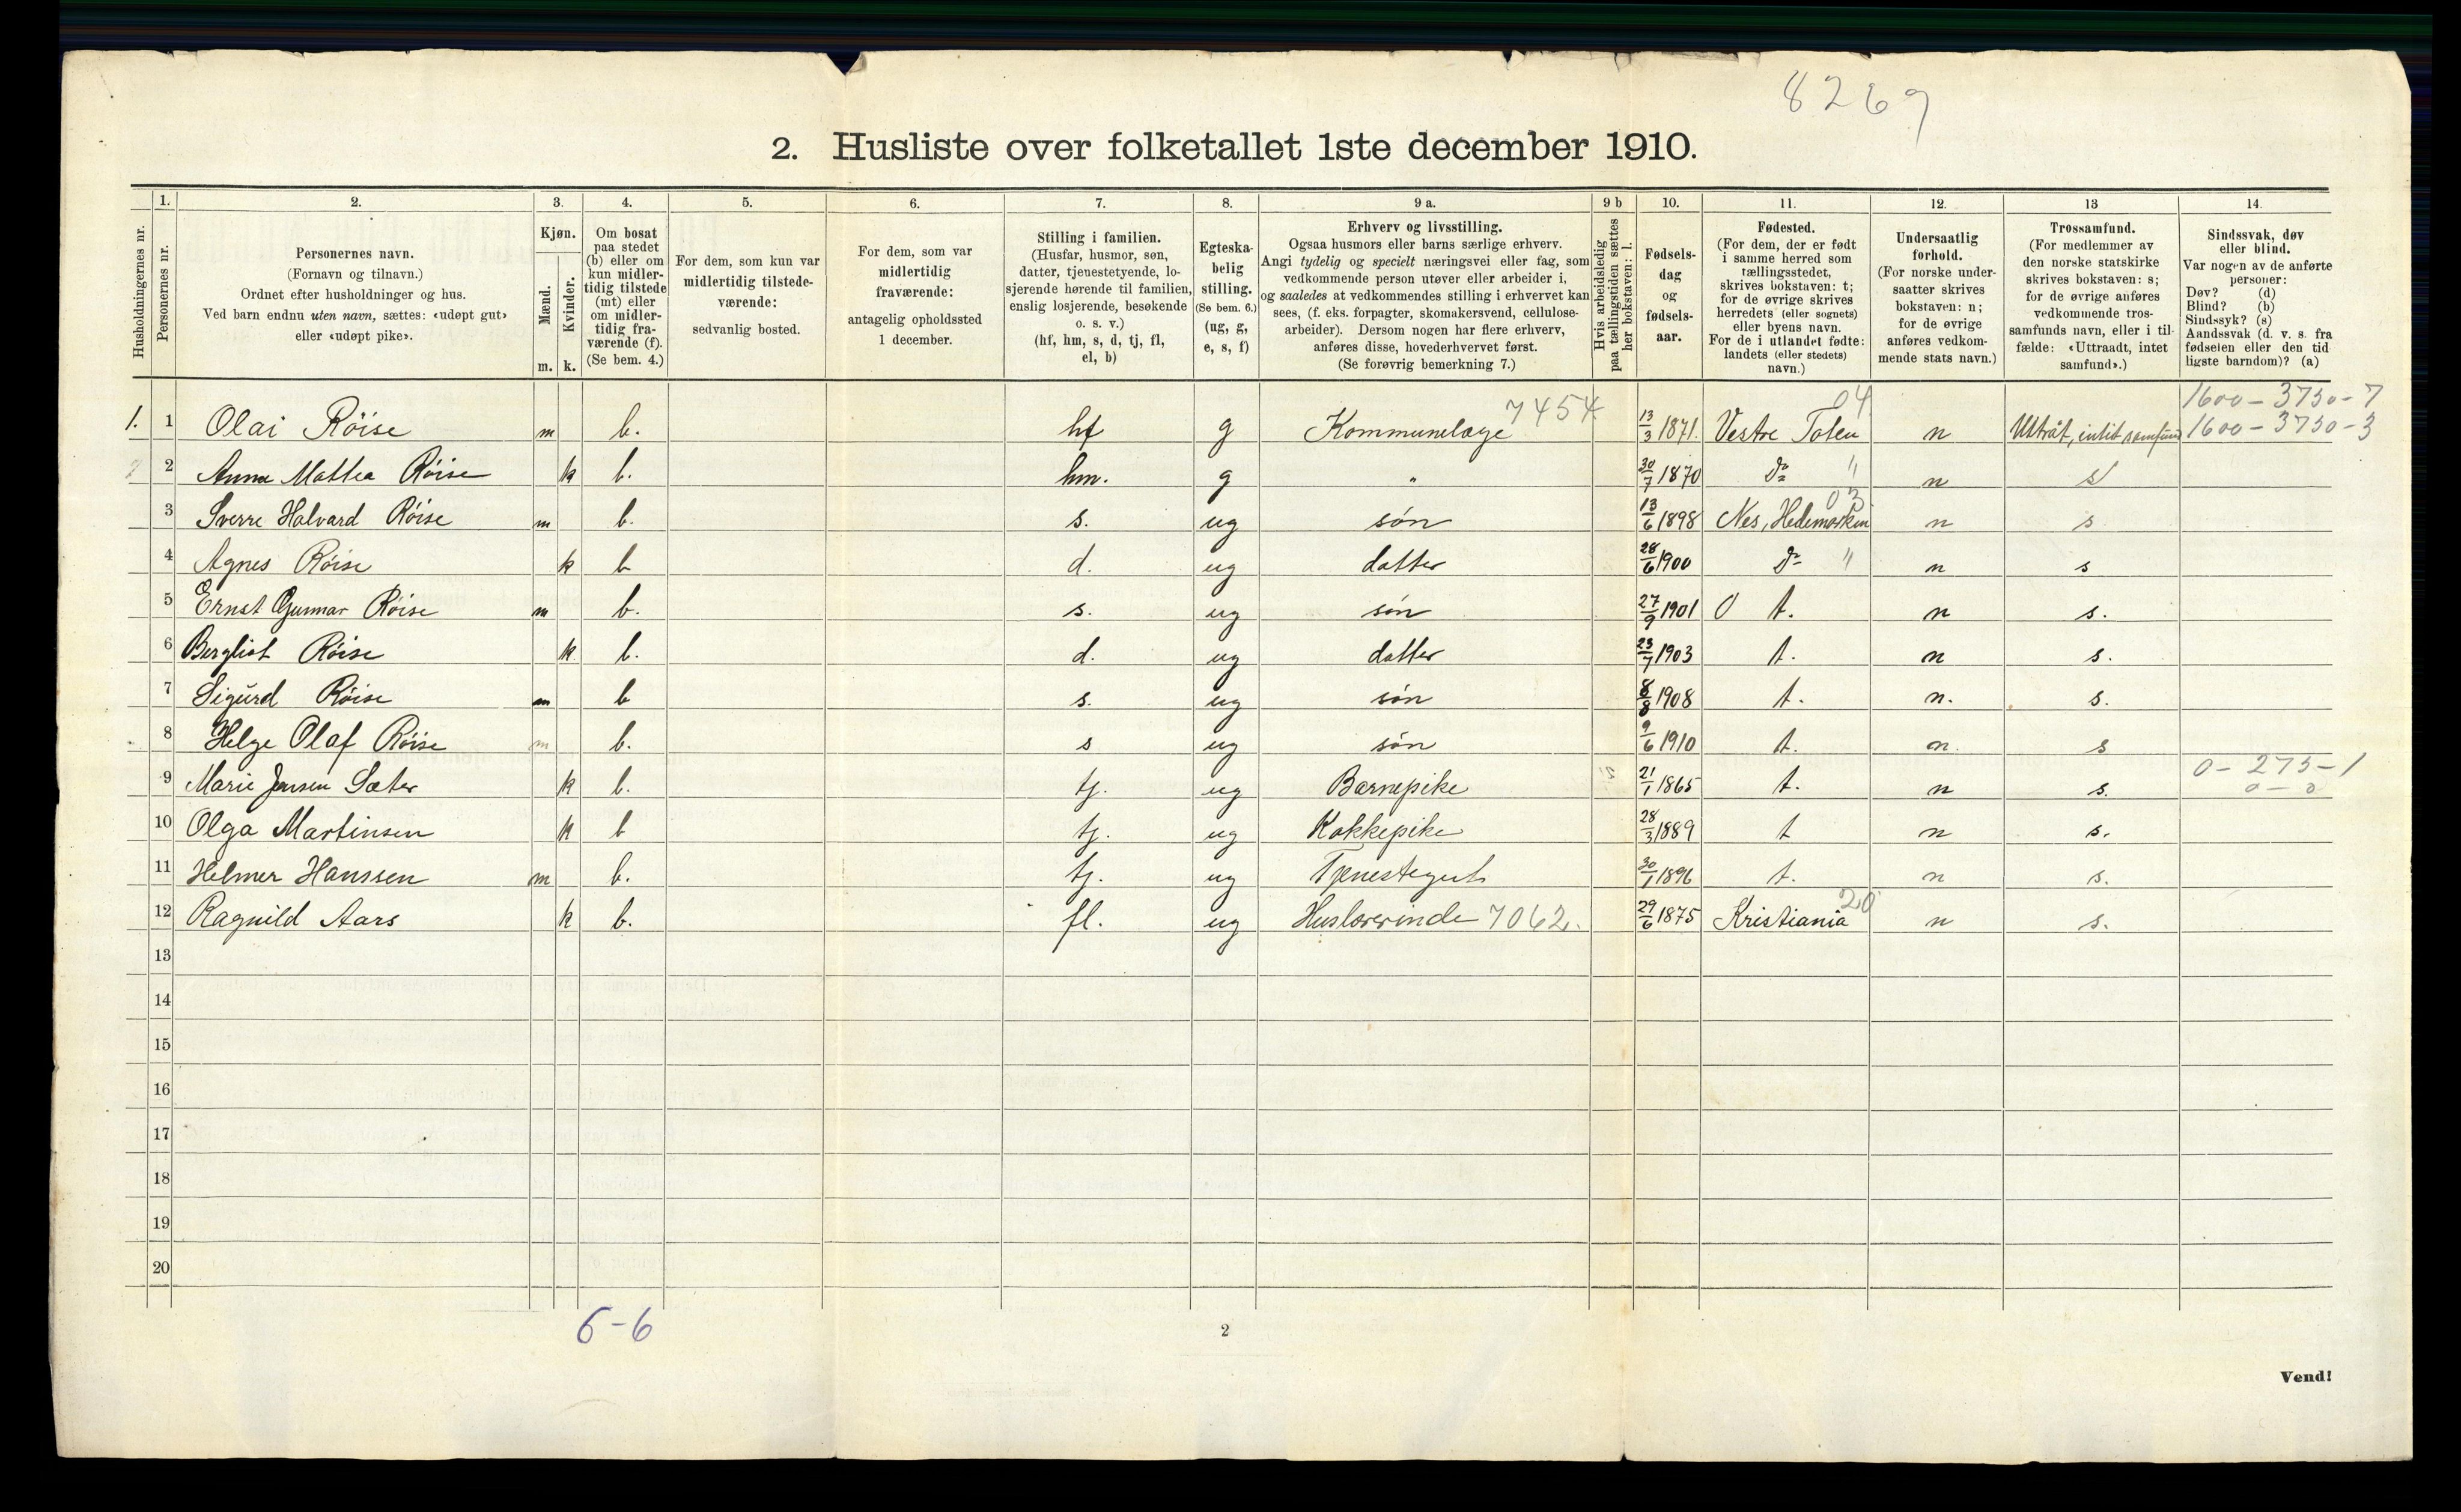 8269
2. Husliste over folketallet 1ste december 1910.
Husholdningernes nr.
1.
Personernes nr.
2.
Personernes navn.
(Fornavn og tilnavn.)
Ordnet efter husholdninger og hus.
Ved barn endnu uten navn, sættes: «udøpt gut»
eller «udøpt pike».
3.
Kjøn.
Mænd.
Kvinder.
m. k.
4.
Om bosat
paa stedet
(b) eller om
kun midler-
tidig tilstede
(mt) eller
om midler-
tidig fra-
værende (f).
(Se bem. 4.)
5.
For dem, som kun var
midlertidig tilstede-
værende:
sedvanlig bosted.
6.
For dem, som var
midlertidig
fraværende:
antagelig opholdssted
1 december.
7.
Stilling i familien.
(Husfar, husmor, søn,
datter, tjenestetyende, lo-
sjerende hørende til familien,
enslig losjerende, besøkende
o. s. v.)
(hf, hm, s, d, tj, fl,
el, b)
8.
Egteska-
belig
stilling.
(Se bem. 6.)
(ug, g,
e, s, f)
9 a.
Erhverv og livsstilling.
Ogsaa husmors eller barns særlige erhverv.
Angi tydelig og specielt næringsvei eller fag, som
vedkommende person utøver eller arbeider i,
og saaledes at vedkommendes stilling i erhvervet kan
sees, (f. eks. forpagter, skomakersvend, cellulose-
arbeider). Dersom nogen har flere erhverv,
anføres disse, hovederhvervet først.
(Se forøvrig bemerkning 7.)
9 b
Hvis arbeidsledig
paa tællingstiden sættes
her bokstaven: l.
10.
Fødsels-
dag
og
fødsels-
aar.
11.
Fødested.
(For dem, der er født
i samme herred som
tællingsstedet,
skrives bokstaven: t;
for de øvrige skrives
herredets (eller sognets)
eller byens navn.
For de i utlandet fødte:
landets (eller stedets)
navn.)
12.
Undersaatlig
forhold.
(For norske under-
saatter skrives
bokstaven: n;
for de øvrige
anføres vedkom-
mende stats navn.)
13
Trossamfund.
(For medlemmer av
den norske statskirke
skrives bokstaven: s;
for de øvrige anføres
vedkommende tros-
samfunds navn, eller i til-
fælde: «Uttraadt, intet
samfund».)
14.
Sindssvak, døv
eller blind.
Var nogen av de anførte
personer:
Døv? (d)
Blind? (b)
Sindssyk? (s)
Aandssvak (d. v. s. fra
fødselen eller den tid
ligste barndom)? (a)
04 1600 - 3750 - 7
1. 1 Olai Röise m b. hf g Kommunelæge 7454 13/3 1871. Vestre Toten n Uttråt, intit samfund 1600 - 3750 - 3
2 Anna Mathea Röise k b. hm. g " 30/7 1870 Do " n s
3 Sverre Halvard Röise m b. s. ug søn 13/6 1898 Nes, Hedemarken 03 n s
4 Agnes Röise k b d. ug datter 28/6 1900 Do " n s
5 Ernst Gunnar Röise m b. s. ug søn 27/9 1901 0 t. n s.
6 Bergliot Röise k. b. d. ug datter 23/7 1903 t. n s.
7 Sigurd Röise m b s. ug søn 8/8 1908 t. n. s.
8 Helge Olaf Röise m b. s ug søn 9/6 1910 t. n. s
0 - 275 - 1
9 Marie Jensen Sæter k b. tj. ug Barnepike 21/1 1865 t. n s. 0 - 0
10 Olga Martinsen k b tj. ug Kokkepike 28/3 1889 t n s.
11 Helmer Hanssen m b. tj. ug Tjenestegut 30/1 1896 t. n s.
12 Ragnild Aars k b. fl. ug Huslærerinde 7062. 29/6 1875 Kristiania 20 n s.
13
14
15
16
17
18
19
20
6-6
2
Vend!